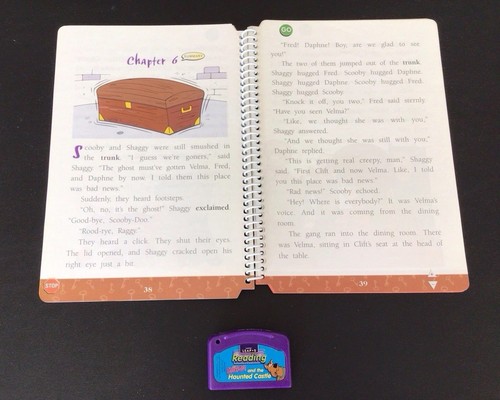 Chapter 6
Scooby and Shaggy were still smushed in
the trunk. "I guess we're goners," said
Shaggy. "The ghost must've gotten Velma, Fred,
and Daphne by now. I told them this place
was bad news."
Suddenly, they heard footsteps.
"Oh, no, it's the ghost!" Shaggy exclaimed.
"Good-bye, Scooby-Doo."
"Rood-rye, Raggy."
They heard a click. They shut their eyes.
The lid opened, and Shaggy cracked open his
right eye just a bit.
STOP
38
GO
"Fred! Daphne! Boy, are we glad to see
you!"
The two of them jumped out of the trunk.
Shaggy hugged Fred. Scooby hugged Daphne.
Shaggy hugged Daphne. Scooby hugged Fred.
Shaggy hugged Scooby.
"Knock it off, you two," Fred said sternly.
"Have you seen Velma?"
"Like, we thought she was with you,"
Shaggy answered.
"And we thought she was still with you,"
Daphne replied.
"This is getting real creepy, man," Shaggy
said. "First Clift and now Velma. Like, I told
you this place was bad news."
"Rad news!" Scooby echoed.
"Hey! Where is everybody?" It was Velma's
voice. And it was coming from the dining
room.
The gang ran into the dining room. There
was Velma, sitting in Clift's seat at the head of
the table.
39
LEAP 1
Reading
and the
Haunted Castle